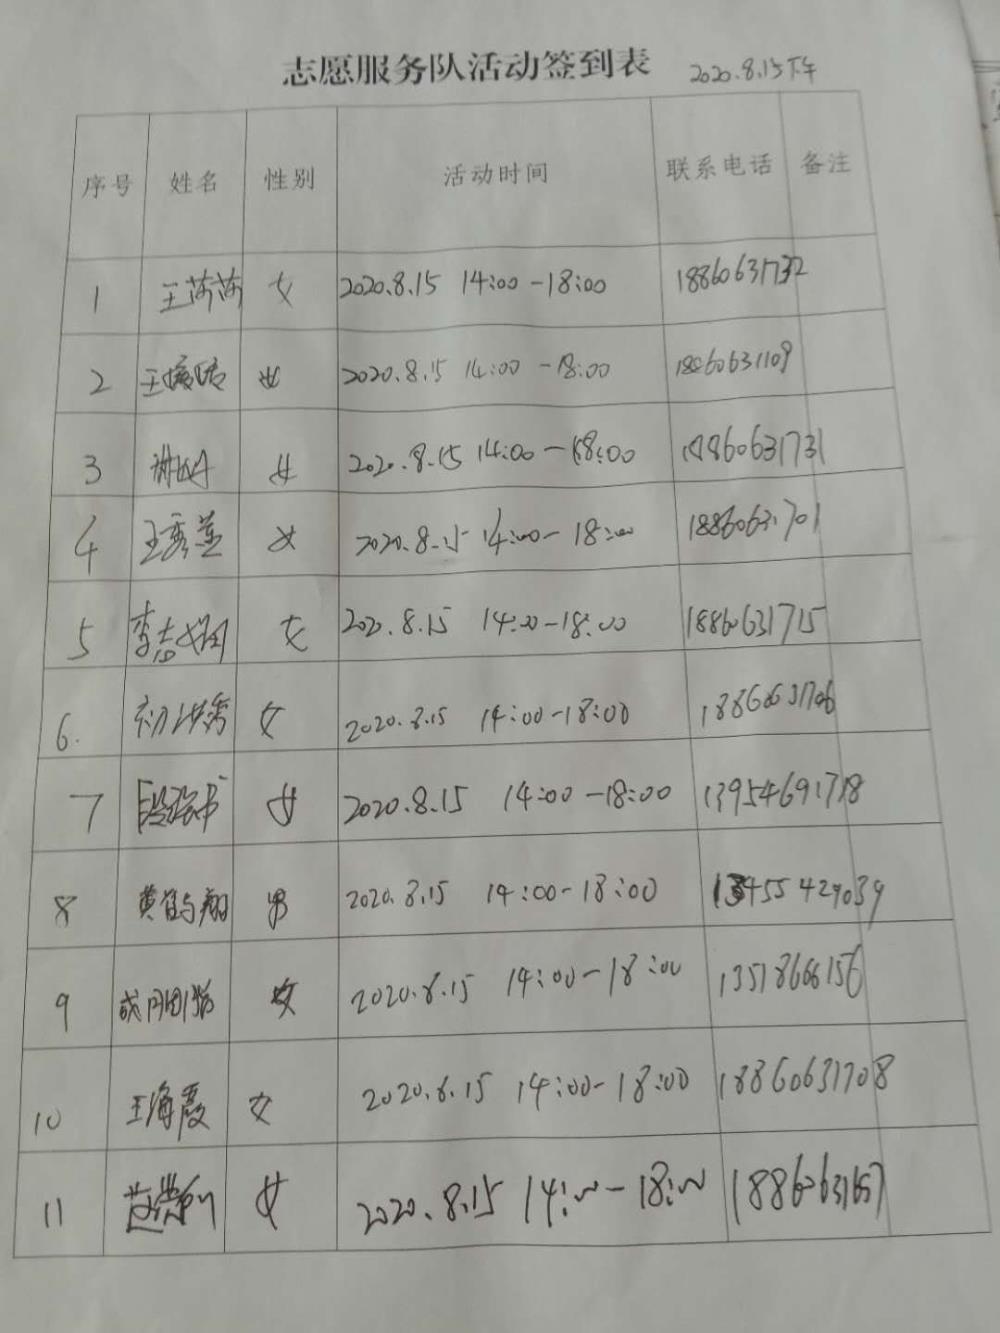 志愿服务队活动签到表 2020.8.15下午
序号 姓名 性别 活动时间 联系电话 备注
1 王芮芮 女 2020.8.15 14:00-18:00 18860631732
2 王 女 2020.8.15 14:00-18:00 18860631109
3 女 2020.8.15 14:00-18:00 18860631731
4 王秀莲 女 2020.8.15 14:00-18:00 18860631701
5 李志娟 女 2020.8.15 14:00-18:00 18860631715
6. 初 女 2020.8.15 14:00-18:00 18860631706
7 段 女 2020.8.15 14:00-18:00 13954691718
8 黄 翔 男 2020.8.15 14:00-18:00 13455429039
9 成 女 2020.8.15 14:00-18:00
10 王海霞 女 2020.8.15 14:00-18:00 18860631708
11 范 女 2020.8.15 14:00-18:00